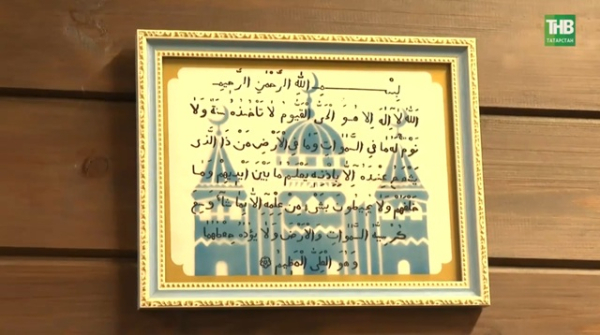 ТНВ
ТАТАРСТАН
بِسْمِ اللهِ الرَّحْمٰنِ الرَّحِيمِ
اَللهُ لَا اِلٰهَ اِلَّا هُوَ الْحَيُّ الْقَيُّومُ لَا تَأْخُذُهُ سِنَةٌ وَلَا
نَوْمٌ لَهُ مَا فِي السَّمٰوَاتِ وَمَا فِي الْاَرْضِ مَنْ ذَا الَّذِى
يَشْفَعُ عِنْدَهُ اِلَّا بِاِذْنِهِ يَعْلَمُ مَا بَيْنَ اَيْدِيهِمْ وَمَا
خَلْفَهُمْ وَلَا يُحِيطُونَ بِشَىْءٍ مِنْ عِلْمِهِ اِلَّا بِمَا شَاءَ وَسِعَ
كُرْسِيُّهُ السَّمٰوَاتِ وَالْاَرْضَ وَلَا يَؤُدُهُ حِفْظُهُمَا
وَهُوَ الْعَلِىُّ الْعَظِيمُ